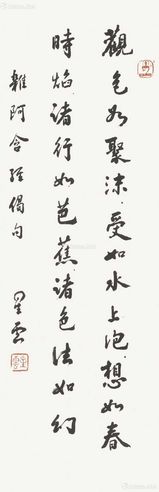 觀色如聚沫，受如水上泡，想如春
時焰，諸行如芭蕉，諸色法如幻
雜阿含經偈句
星雲